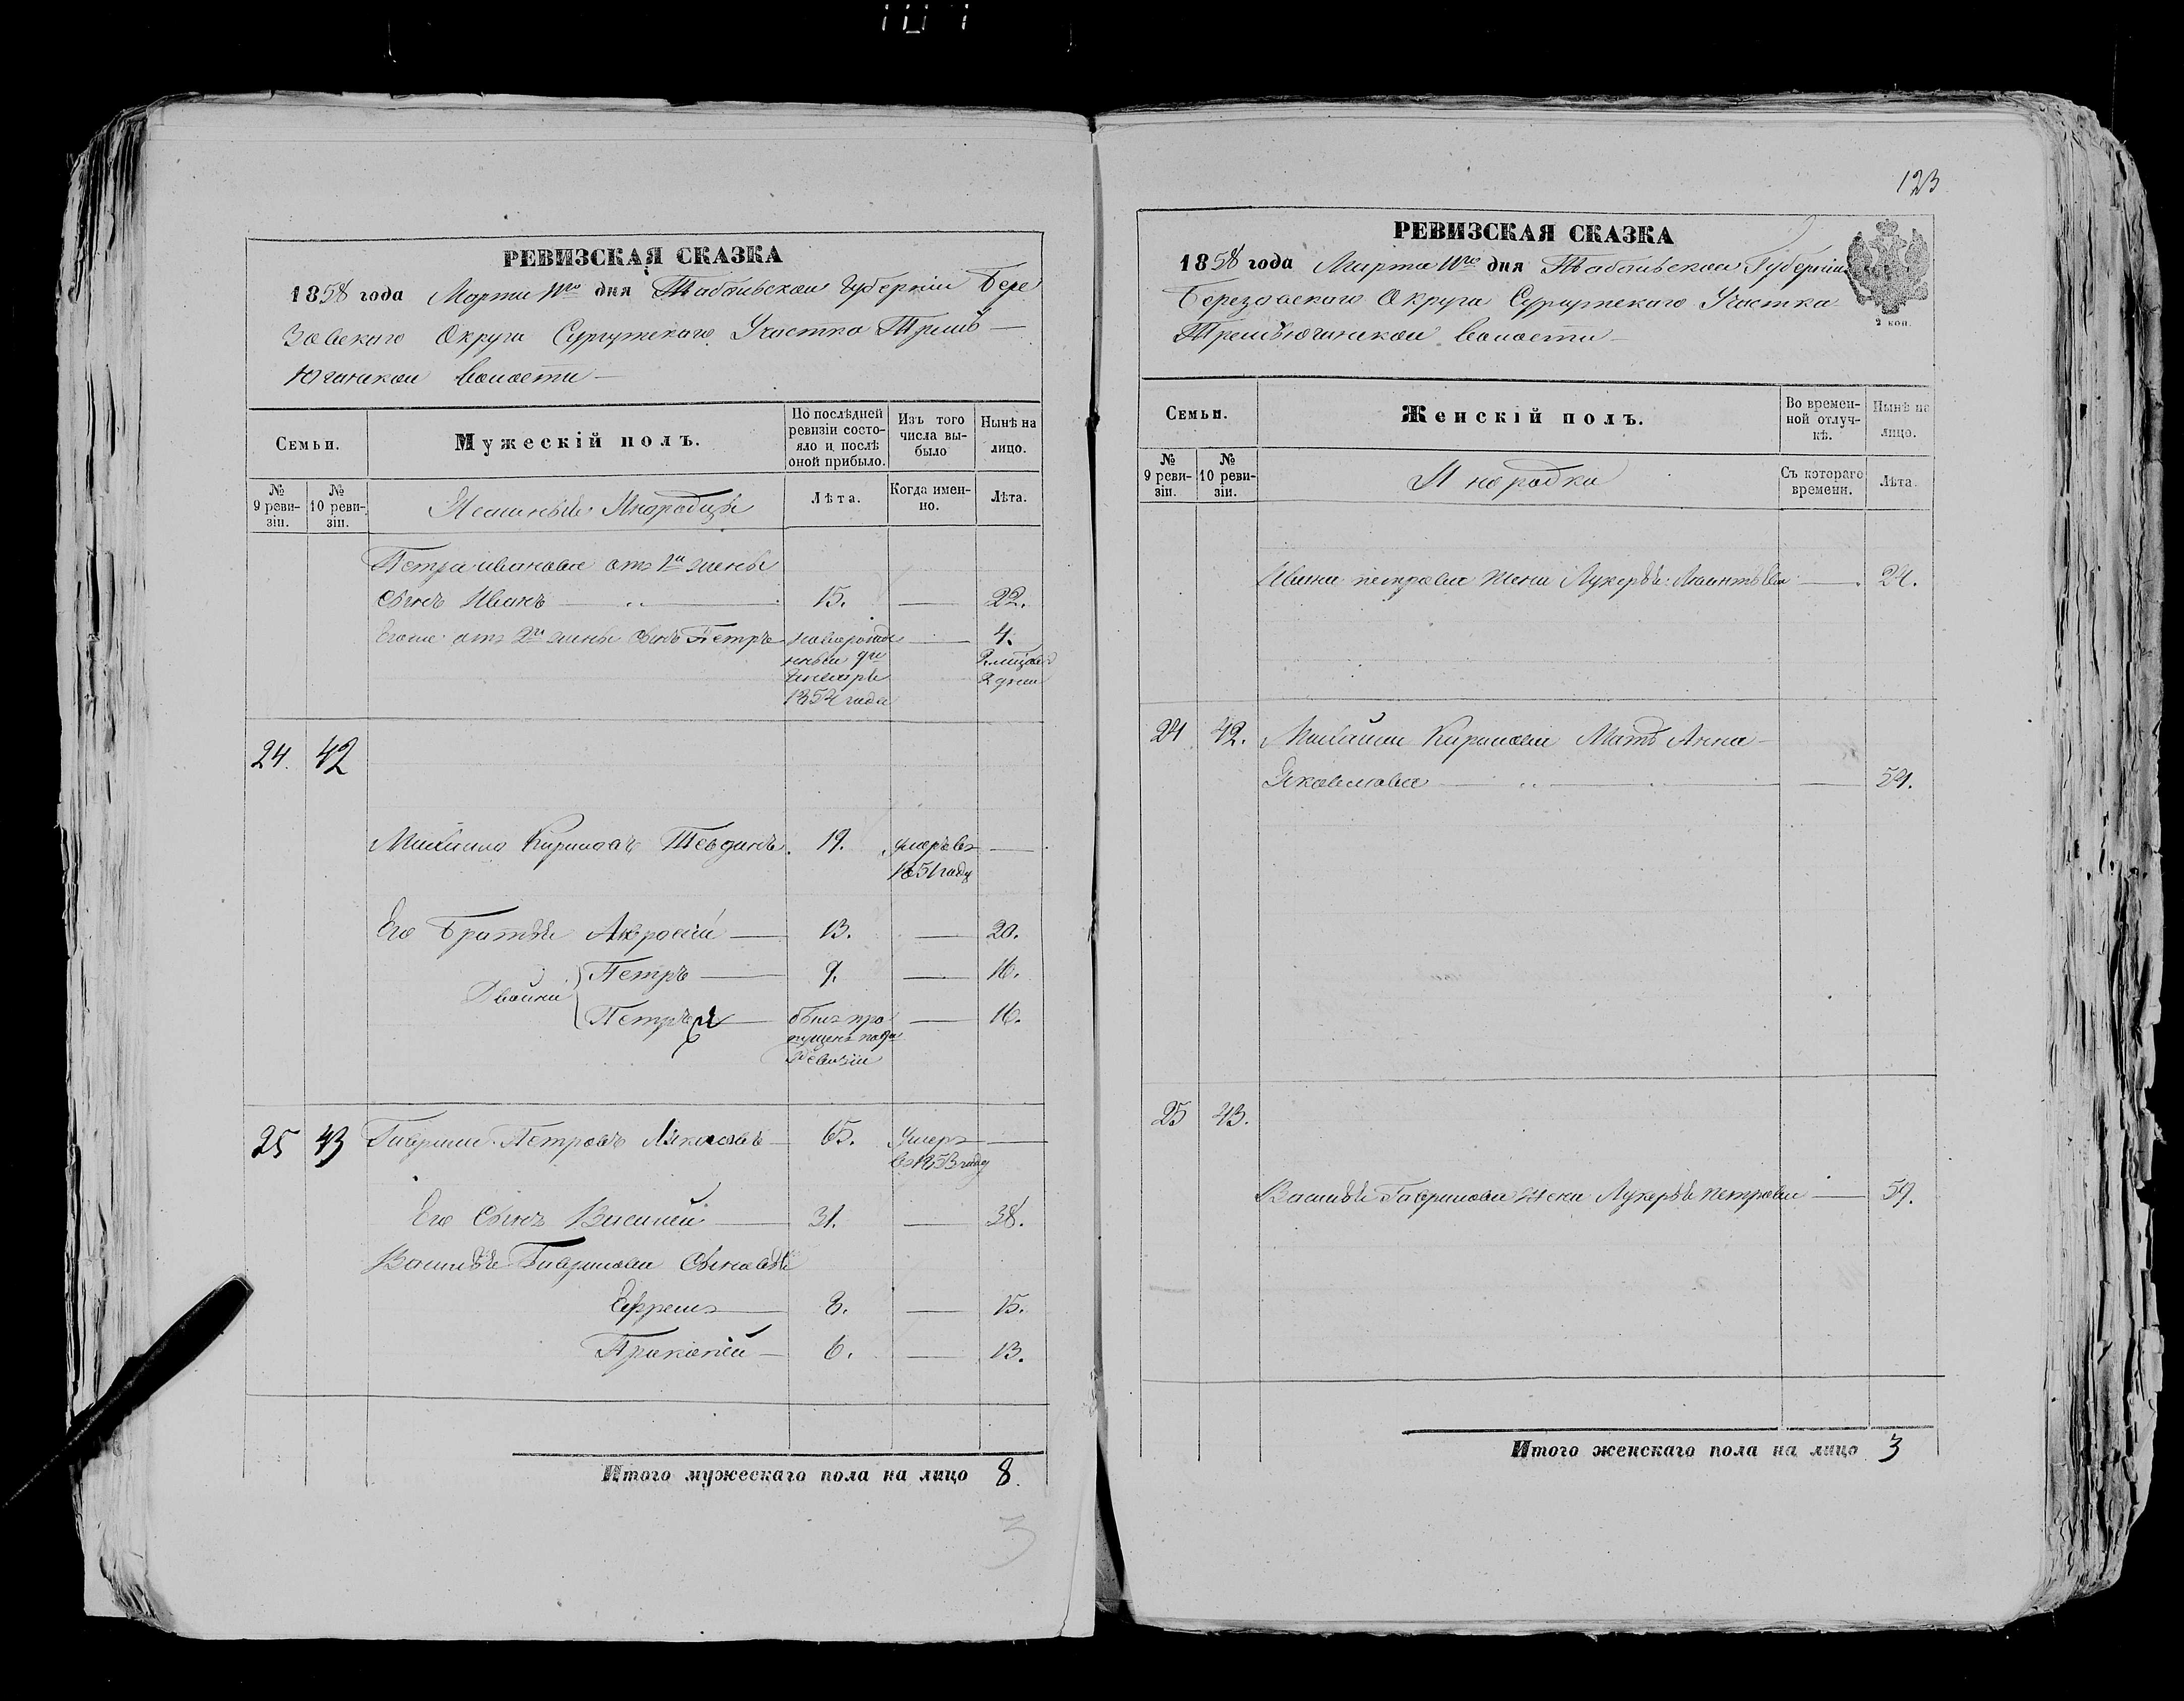 РЕВИЗСКАЯ СКАЗКА
1858 года Марта 11го дня Тобольской Губерніи Бере
зовскаго Округа Сургутскаго Участка Тремъ
Юганской волости
Семьи.
Мужескій полъ.
По послѣдней ревизіи состо-
яло и послѣ оной прибыло.
Изъ того числа вы-
было
Нынѣ на лицо.
№ 9 реви-
зіи.
№ 10 реви-
зіи.
Ясашные Инородцы
Лѣта.
Когда имен-
но.
Лѣта.
Петра Иванова отъ 1й жены
сынъ Иванъ 15. 22.
Его же отъ 2й жены сынъ Петръ новорожде 4.
нный 9го
Генваря 2 дни
1854 года
24. 42
Михайло Кириловъ 19. умеръ въ
1851 году
Его Братья Амвросій 13. 20.
Двойни Петръ 9. 16.
Петръ былъ про 16.
пущенъ по 9й
Ревизіи
25 43 Гаврило Петровъ 65. Умеръ
въ 1853 году
Его Сынъ Василей 31. 38.
Василья Гаврилова Сыновья
Ефремъ 8. 15.
Прокопей 6. 13.
Итого мужескаго пола на лицо 8.
3
123
РЕВИЗСКАЯ СКАЗКА
1858 года Марта 11го дня Тобольской Губерніи
Березовскаго Округа Сургутскаго Участка
Тремъюганской волости
2 коп.
Семьи.
Женскій полъ.
Во времен-
ной отлуч-
кѣ.
Нынѣ на лицо.
№ 9 реви-
зіи.
№ 10 реви-
зіи.
Инородки
Съ котораго времени.
Лѣта.
Ивана петрова жена Лукерья 24.
24 42. Михайла Кирилова Мать Анна
Яковлева 54.
25 43.
Василья Гаврилова жена Лукерья петрова 59.
Итого женскаго пола на лицо 3